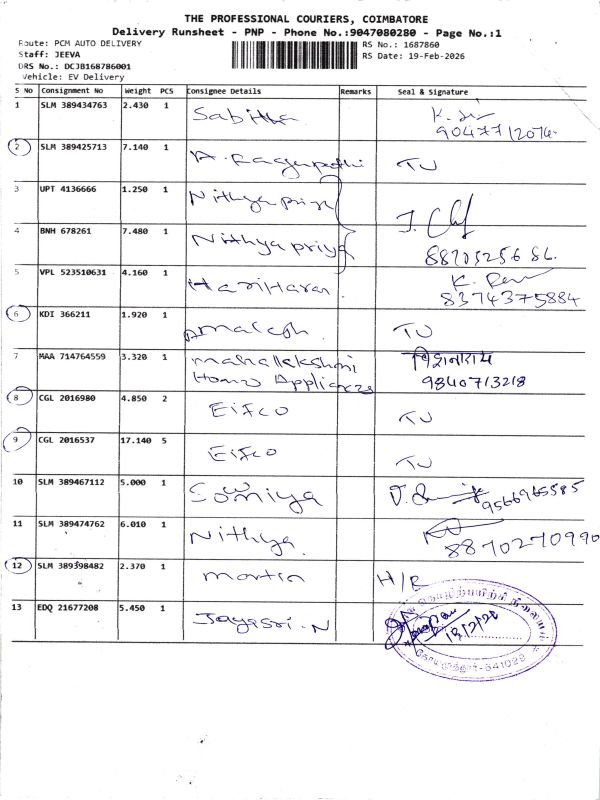 THE PROFESSIONAL COURIERS, COIMBATORE
Delivery Runsheet - PNP - Phone No.:9047080280 - Page No.:1
Route: PCM AUTO DELIVERY
Staff: JEEVA
DRS No.: DCJB168786001
Vehicle: EV Delivery
RS No.: 1687860
RS Date: 19-Feb-2026
S No Consignment No Weight PCS Consignee Details Remarks Seal & Signature
1 SLM 389434763 2.430 1 Sabitha
9047712074
2 SLM 389425713 7.140 1 A. Ragupathi TU
3 UPT 4136666 1.250 1 Nithya priya
4 BNH 678261 7.480 1 Nithya priya
5 VPL 523510631 4.160 1 Hariharan.
8374375884
6 KDI 366211 1.920 1 Amalesh. TU
7 MAA 714764559 3.320 1 mahallekshmi
Home Appliances
9840713218
8 CGL 2016980 4.850 2 Eifco TU
9 CGL 2016537 17.140 5 Eifco TU
10 SLM 389467112 5.000 1 Sowmiya
9566965585
11 SLM 389474762 6.010 1 Nithya.
8870270990
12 SLM 389398482 2.370 1 martin H/R
13 EDQ 21677208 5.450 1 Jayasri. N
641028